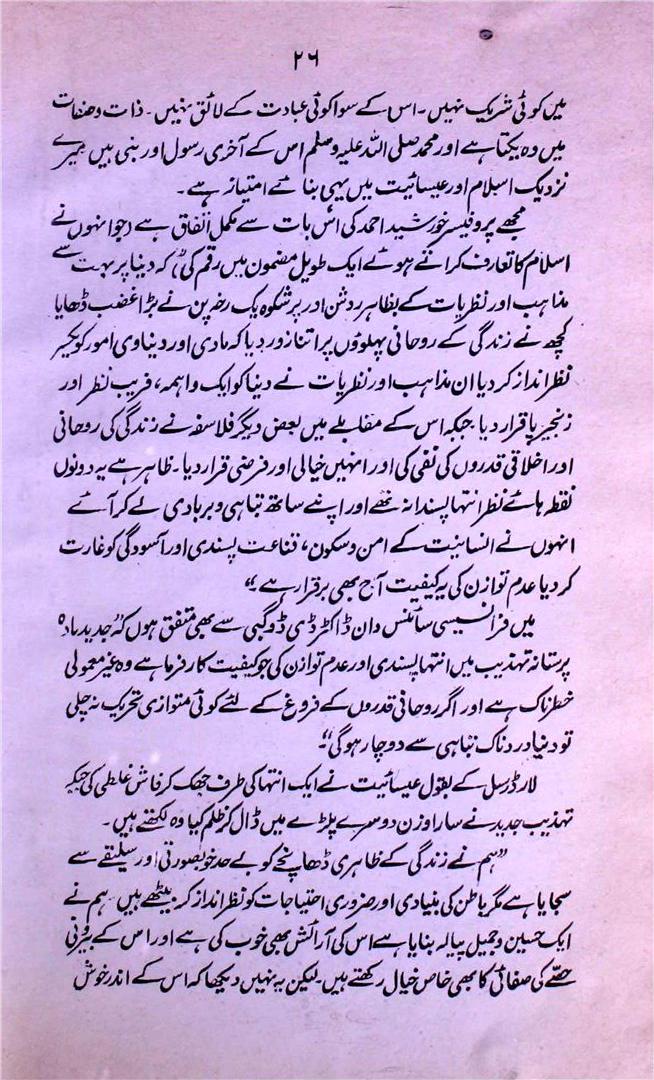 ۲۶
میں کوئی شریک نہیں۔ اس کے سوا کوئی عبادت کے لائق نہیں۔ ذات و صفات
میں وہ یکتا ہے اور محمد صلی اللہ علیہ وسلم اس کے آخری رسول اور نبی ہیں میرے
نزدیک اسلام اور عیسائیت میں یہی بنائے امتیاز ہے۔
مجھے پروفیسر خورشید احمد کی اس بات سے مکمل اتفاق ہے (جو انہوں نے
اسلام کا تعارف کراتے ہوئے ایک طویل مضمون میں رقم کی) کہ دنیا پر بہت سے
مذاہب اور نظریات کے بظاہر روشن اور پرشکوہ یک رخے پن نے بڑا غضب ڈھایا
کچھ نے زندگی کے روحانی پہلوؤں پر اتنا زور دیا کہ مادی اور دیناوی امور کو یکسر
نظر انداز کر دیا ان مذاہب اور نظریات نے دنیا کو ایک واہمہ، فریب نظر اور
زنجیر پا قرار دیا جبکہ اس کے مقابلے میں بعض دیگر فلاسفہ نے زندگی کی روحانی
اور اخلاقی قدروں کی نفی کی اور انہیں خیالی اور فرضی قرار دیا۔ ظاہر ہے یہ دونوں
نقطہ ہائے نظر انتہا پسندانہ تھے اور اپنے ساتھ تباہی و بربادی لے کر آئے
انہوں نے انسانیت کے امن و سکون، قناعت پسندی اور آسودگی کو غارت
کر دیا عدم توازن کی یہ کیفیت آج بھی برقرار ہے۔“
میں فرانسیسی سائنس دان ڈاکٹر ڈی ڈوگبی سے بھی متفق ہوں کہ ”جدید مادہ
پرستانہ تہذیب میں انتہا پسندی اور عدم توازن کی جو کیفیت کارفرما ہے وہ غیر معمولی
خطرناک ہے اور اگر روحانی قدروں کے فروغ کے لئے کوئی متوازی تحریک نہ چلی
تو دنیا دردناک تباہی سے دوچار ہوگی“۔
لارڈ رسل کے بقول عیسائیت نے ایک انتہا کی طرف جھک کر فاش غلطی کی جبکہ
تہذیب جدید نے سارا وزن دوسرے پلڑے میں ڈال کر ظلم کیا وہ لکھتے ہیں۔
”ہم نے زندگی کے ظاہری ڈھانچے کو بے حد خوبصورتی اور سلیقے سے
سجایا ہے مگر باطن کی بنیادی اور ضروری احتیاجات کو نظر انداز کر بیٹھے ہیں ہم نے
ایک حسین و جمیل پیالہ بنایا ہے اس کی آرائش بھی خوب کی ہے اور اس کے بیرونی
حصّے کی صفائی کا بھی خاص خیال رکھتے ہیں۔ لیکن یہ نہیں دیکھا کہ اس کے اندر خوش